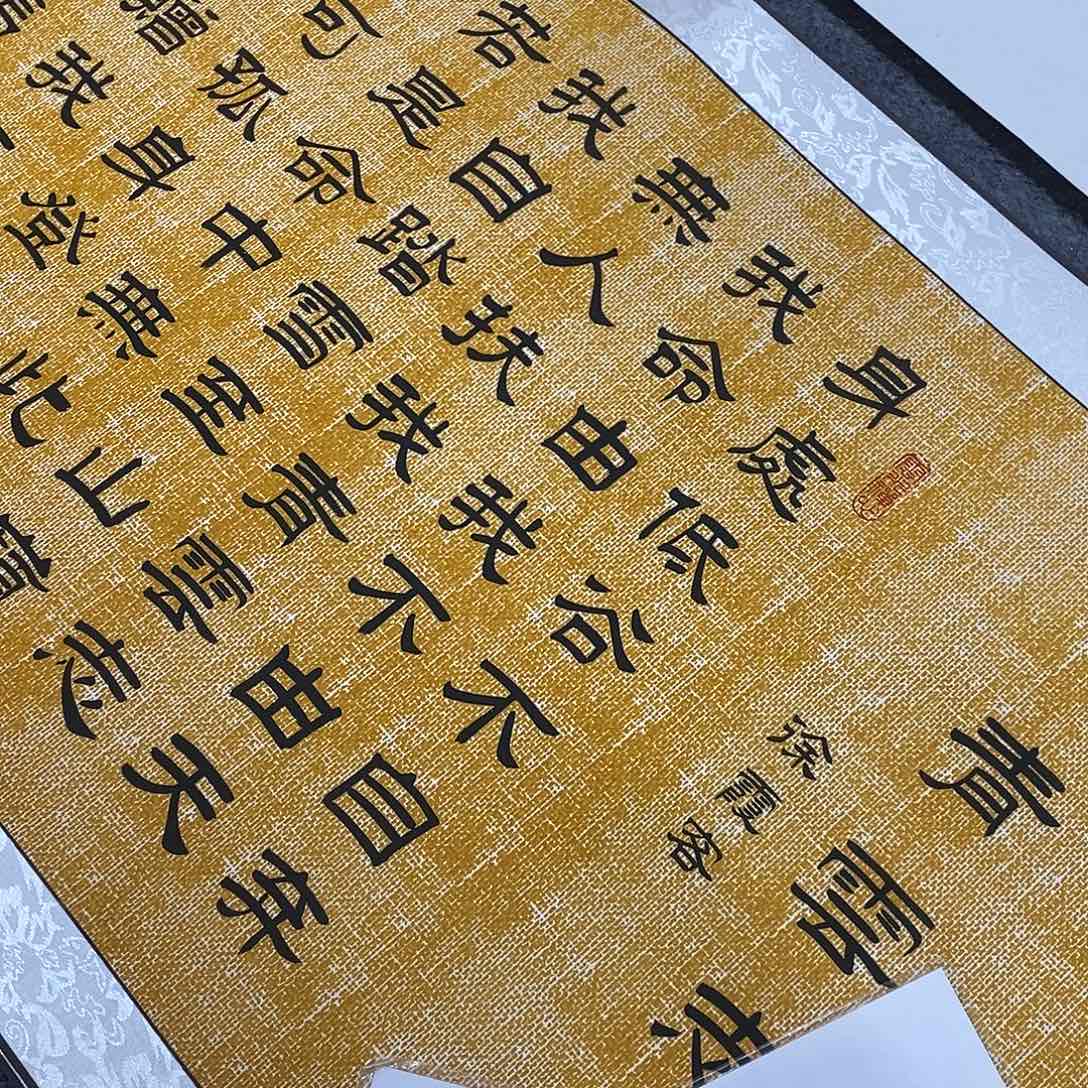 青雲志
徐霞客
身處低谷不自弃
我命由我不由天
無人扶我青雲志
我自踏雪至山
若是命中無此
可孤身登
贈我